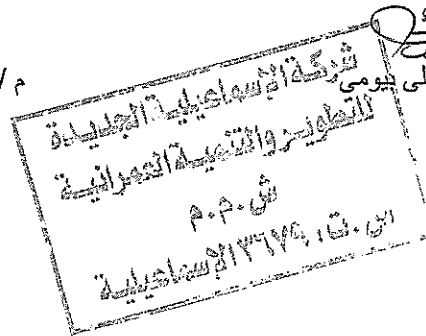 م /
لى بيومى
شركة الإسماعيلية الجديدة
للتطوير والتنمية العمرانية
ش.م.م
س.ت. ٣٦٧٩ الإسماعيلية